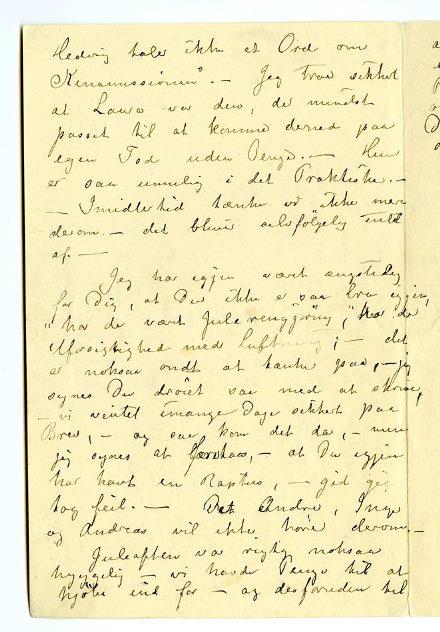 Hedvig taler ikke et Ord om
Kinamissionen". — Jeg tror sikkert
at Laura var den, der mindst
passet til at komme derned paa
egen Tod uden Penge. — Hun
er saa umulig i det Praktiske. —
— Imidlertid tænke vi ikke mer
derom. — det blive selvfølgelig intet
af. —
Jeg har igjen vært ængstelig
for Dig, at Du ikke er saa bra igjen,
"har de vært Julerengjøring",
Uforsigtighed med Luftning; — det
er noksaa ondt at tænke paa, — jeg
synes Du drøiet saa med at skrive,
— vi ventet i mange Dage sikkert paa
Brev, — og saa kom det da, — men
jeg synes at — at Du igjen
har havt en Raptus, — gid jeg
tog feil. — Det Andre, Inga
og Andreas vil ikke høre derom. —
Juleaften var rigtig noksaa
hyggelig — vi havde Penge til at
kjøbe ind for — og desforuden til